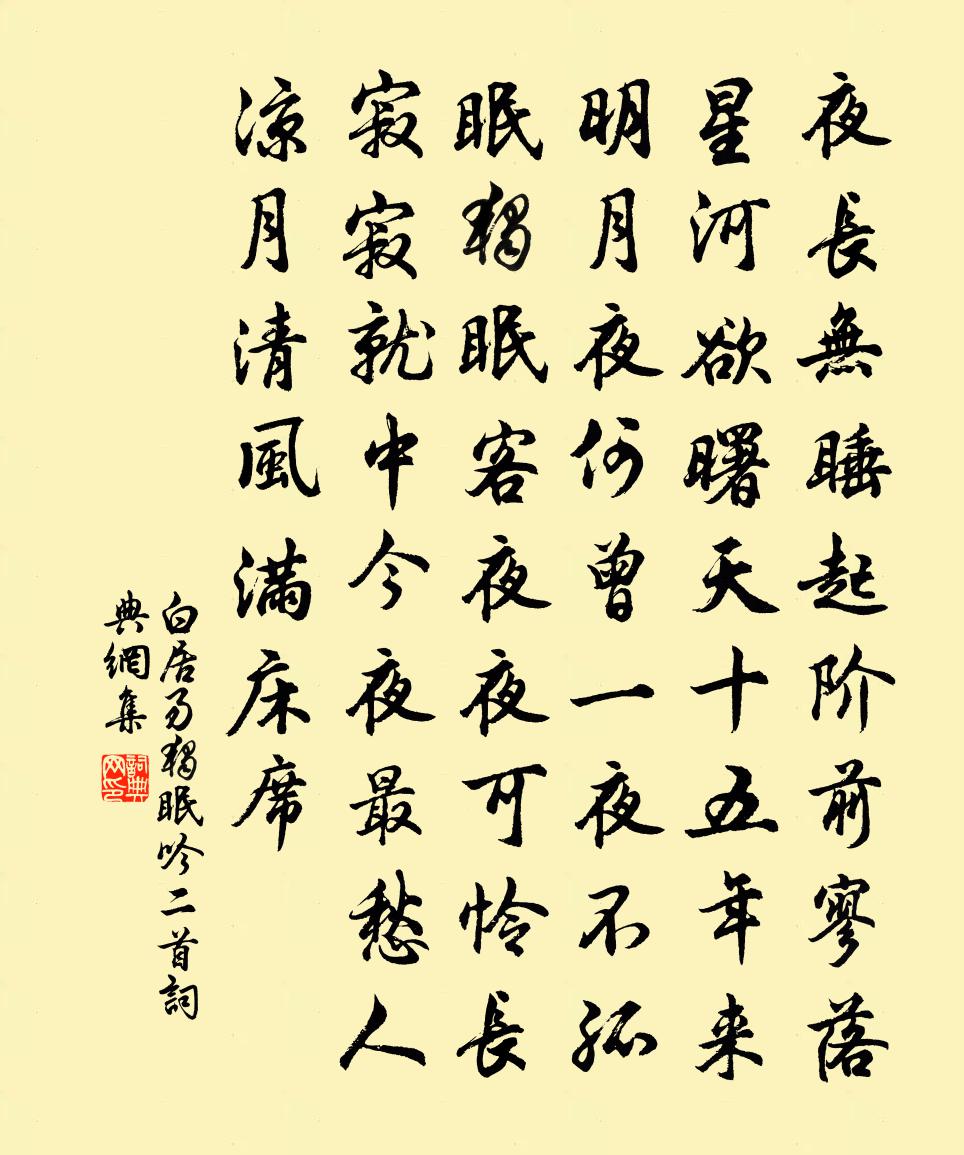 夜長無睡起阶前寥落
星河欲曙天十五年来
明月夜何曾一夜不孤
眠獨眠客夜夜可怜長
寂寂就中今夜最愁人
凉月清風满床席
白居易獨眠吟二首詞
典網集
詞典網印